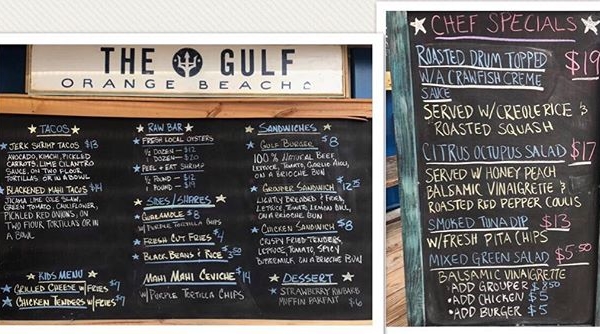 THE GULF
ORANGE BEACH
TACOS
JERK SHRIMP TACOS $13
AVOCADO, KIMCHI, PICKLED
CARROTS, LIME CILANTRO
SAUCE, ON TWO FLOUR
TORTILLAS OR IN A BOWL
BLACKENED MAHI TACOS $14
JICAMA LIME COLE SLAW,
GREEN TOMATO, CAULIFLOWER,
PICKLED RED ONIONS, ON
TWO FLOUR TORTILLAS OR IN
A BOWL
KIDS MENU
GRILLED CHEESE W/FRIES $7
CHICKEN TENDERS W/FRIES $7
RAW BAR
FRESH LOCAL OYSTERS
1/2 DOZEN - $12
1 DOZEN - $20
PEEL + EAT SHRIMP
1/2 POUND - $12
1 POUND - $19
SIDES/SHARES
GUACAMOLE $8
W/ PURPLE TORTILLA CHIPS
FRESH CUT FRIES $4
BLACK BEANS & RICE $3.50
MAHI MAHI CEVICHE $14
W/PURPLE TORTILLA CHIPS
SANDWICHES
GULF BURGER $8
100% NATURAL BEEF,
LETTUCE, TOMATO, GARLIC AIOLI,
ON A BRIOCHE BUN
GROUPER SANDWICH $12.25
LIGHTLY BREADED & FRIED,
LETTUCE, TOMATO, LEMON AIOLI,
ON A BRIOCHE BUN
CHICKEN SANDWICH $8
CRISPY FRIED TENDERS,
LETTUCE, TOMATO, SPICY
BUTTERMILK, ON A BRIOCHE BUN
DESSERT
STRAWBERRY RHUBARB
MUFFIN PARFAIT $6
CHEF SPECIALS
ROASTED DRUM TOPPED $19
W/A CRAWFISH CRÈME
SAUCE
SERVED W/CREOLE RICE &
ROASTED SQUASH
CITRUS OCTUPUS SALAD $17
SERVED W/ HONEY PEACH
BALSAMIC VINAIGRETTE &
ROASTED RED PEPPER COULIS
SMOKED TUNA DIP $13
W/FRESH PITA CHIPS
MIXED GREEN SALAD $5.50
BALSAMIC VINAIGRETTE
• ADD GROUPER $8.50
• ADD CHICKEN $5
• ADD BURGER $5